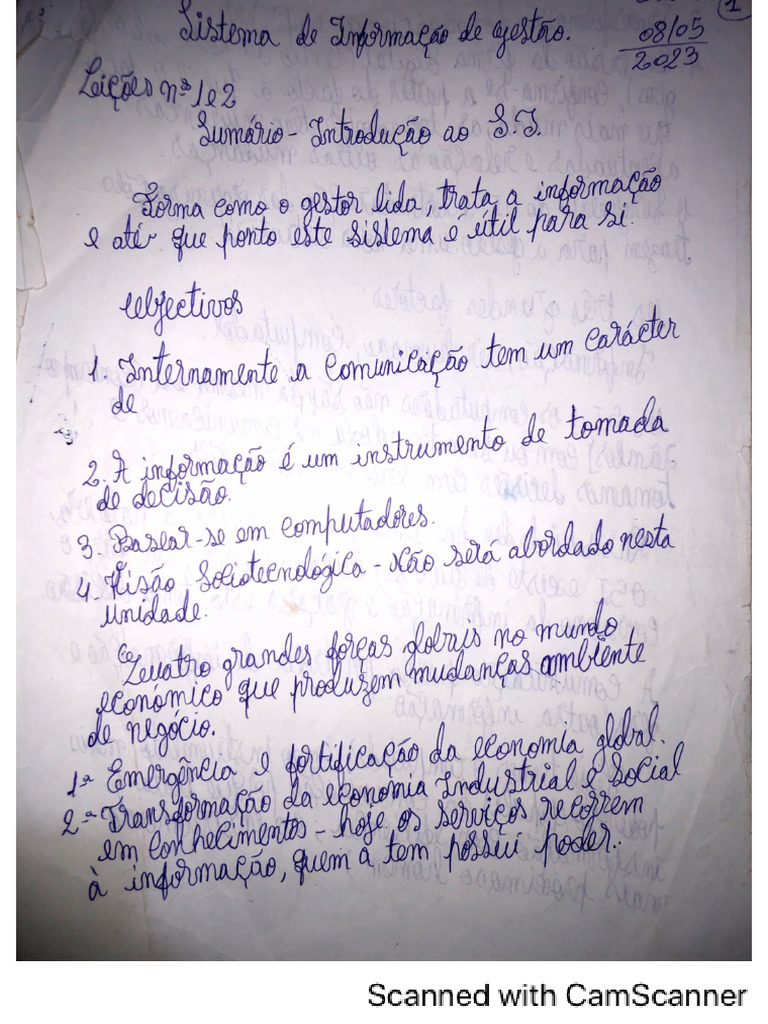 1
Sistema de Informação de gestão.
08/05
2023
Leições nºs 1e2
Sumário - Introdução ao S.I.
Forma como o gestor lida, trata a informação
e até que ponto este sistema é útil para si.
Objectivos
1. Internamente a Comunicação tem um carácter
de
2. A informação é um instrumento de tomada
de decisão.
3. Basear-se em computadores.
4. Visão Sociotecnológica - Não será abordado nesta
unidade.
Quatro grandes forças globais no mundo
económico que produzem mudanças ambiente
de negócio.
1ª Emergência e fortificação da economia global.
2ª Transformação da economia Industrial e Social
em Conhecimentos - hoje os serviços recorrem
à informação, quem a tem possui poder.
Scanned with CamScanner